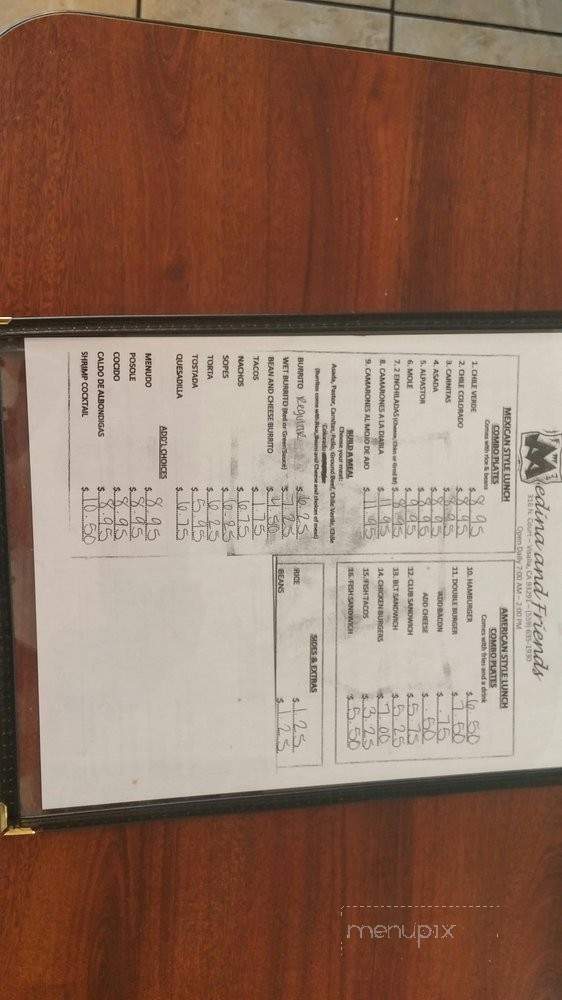 Medina and Friends
316 N. Court - Visalia, CA 93291 - (559) 635-1930
Open Daily 7:00 AM - 2:00 PM
MEXICAN STYLE LUNCH
COMBO PLATES
Comes with rice & beans
1. CHILE VERDE $ 8.95
2. CHILE COLORADO $ 8.95
3. CARNITAS $ 8.95
4. ASADA $ 8.95
5. ALPASTOR $ 8.95
6. MOLE $ 8.95
7. 2 ENCHILADAS (Cheese, Chkn or Grnd Bf) $ 8.95
8. CAMARONES A LA DIABLA $ 11.95
9. CAMARONES AL MOJO DE AJO $ 11.95
AMERICAN STYLE LUNCH
COMBO PLATES
Comes with fries and a drink
10. HAMBURGER $ 6.50
11. DOUBLE BURGER $ 7.50
ADD BACON $ .75
ADD CHEESE $ .50
12. CLUB SANDWICH $ 5.75
13. BLT SANDWICH $ 5.25
14. CHICKEN BURGERS $ 7.00
15. FISH TACOS $ 3.25
16. FISH SANDWICH $ 5.50
BUILD A MEAL
Choose your meat:
Asada, Pastor, Carnitas, Pollo, Ground Beef, Chile Verde, Chile
Colorado
(Burritos come with Rice, Beans and Cheese and choices of meat)
BURRITO Regular $ 6.25
WET BURRITO (Red or Green Sauce) $ 7.25
BEAN AND CHEESE BURRITO $ 4.50
TACOS $ 1.75
NACHOS $ 6.75
SOPES $
TORTA $ 6.25
TOSTADA $ 5.95
QUESADILLA $ 6.75
ADD'L CHOICES
MENUDO $ 8.95
POSOLE $ 8.95
COCIDO $ 8.95
CALDO DE ALBONDIGAS $ 8.95
SHRIMP COCKTAIL $ 10.50
SIDES & EXTRAS
RICE $ 1.25
BEANS $ 1.25
menupix